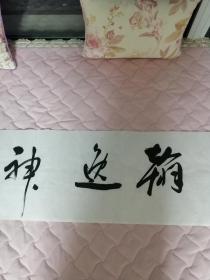 翰逸神